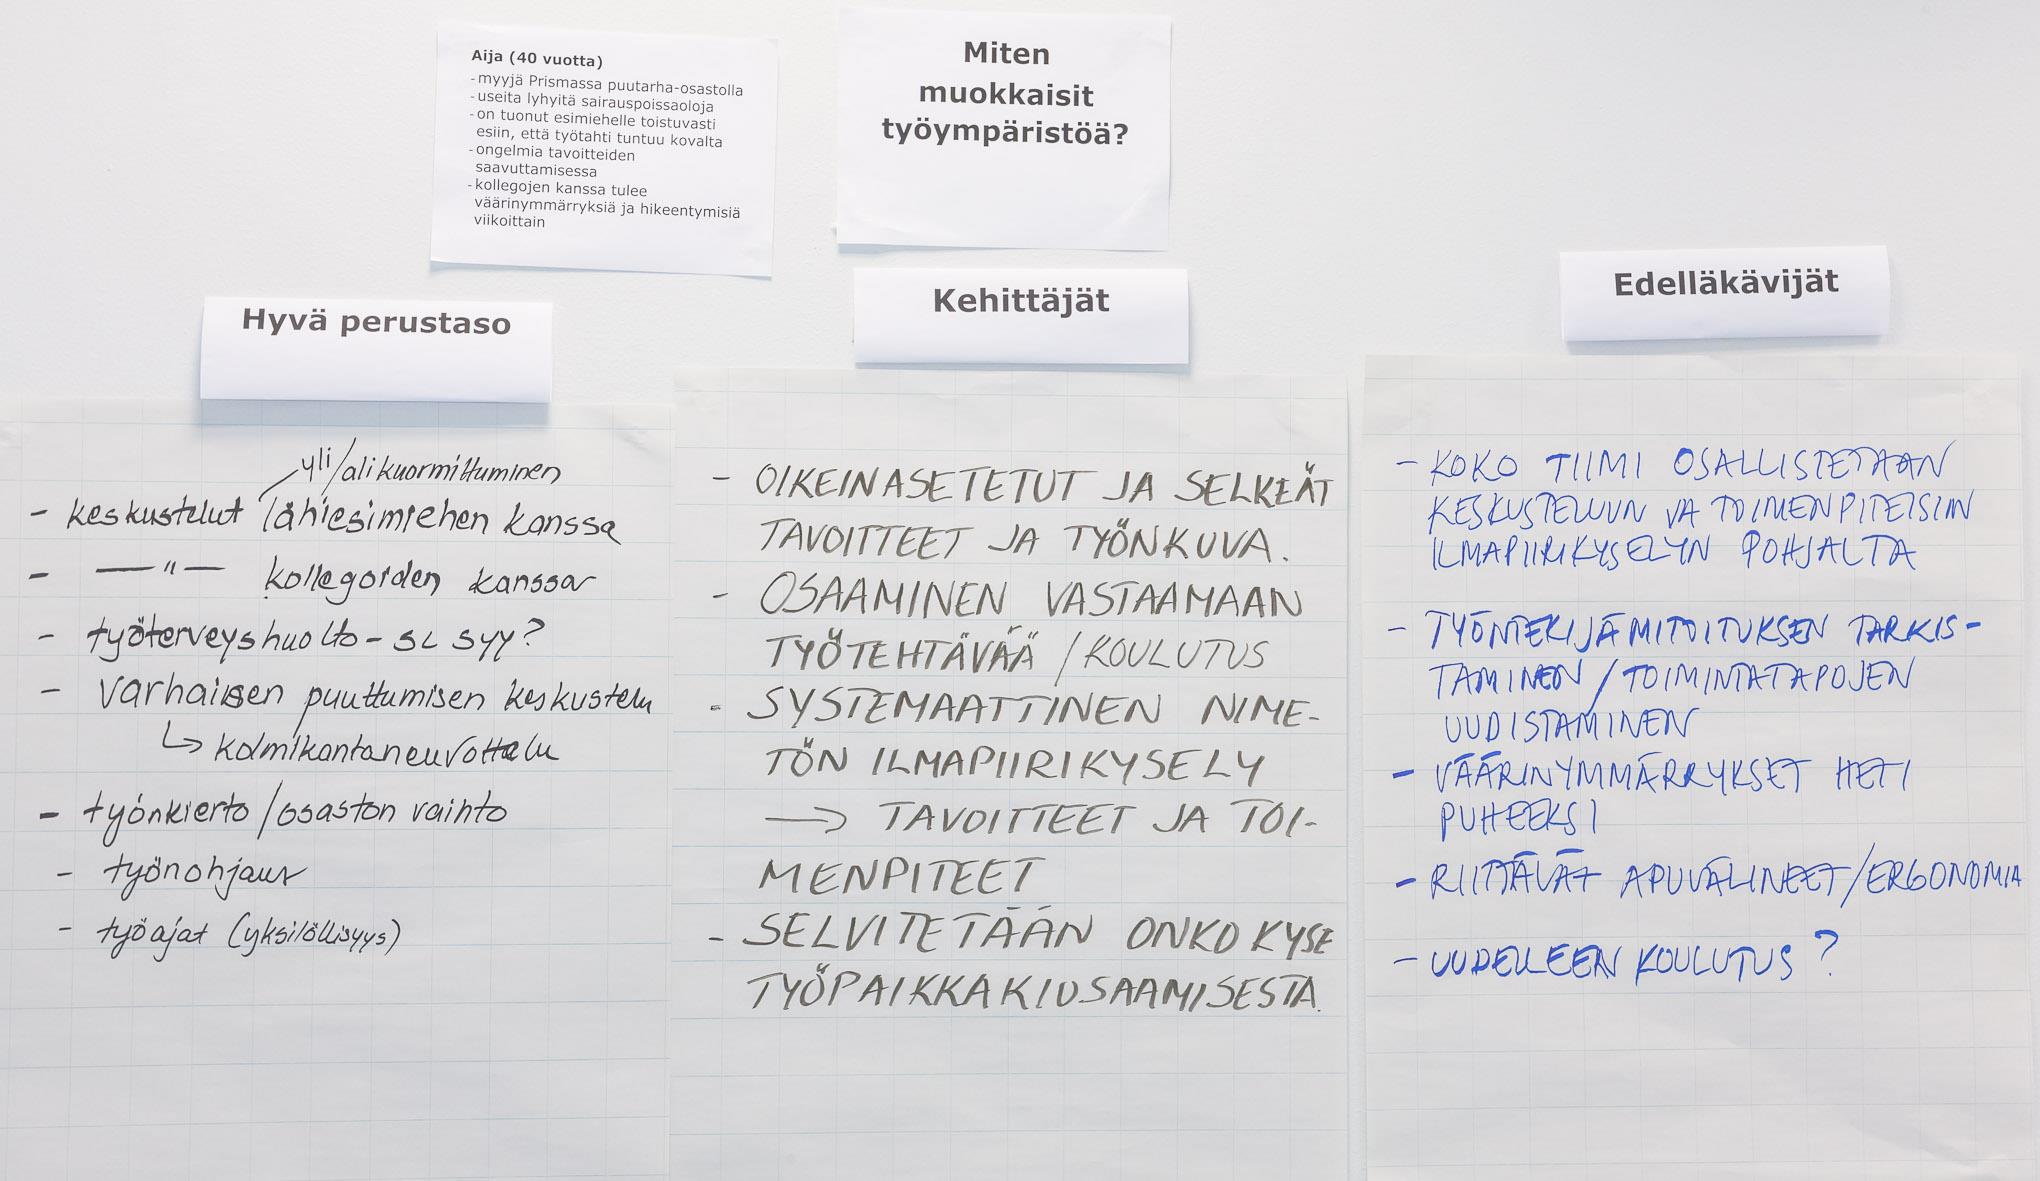 Aija (40 vuotta)
- myyjä Prismassa puutarha-osastolla
- useita lyhyitä sairauspoissaoloja
- on tuonut esimiehelle toistuvasti
esiin, että työtahti tuntuu kovalta
- ongelmia tavoitteiden
saavuttamisessa
- kollegojen kanssa tulee
väärinymmärryksiä ja hikeentymisiä
viikoittain
Miten
muokkaisit
työympäristöä?
Hyvä perustaso
yli/alikuormittuminen
- keskustelut lähiesimiehen kanssa
- —"— kollegoiden kanssa
- työterveyshuolto - SL syy?
- varhaisen puuttumisen keskustelu
↳ kolmikantaneuvottelu
- työnkierto/osaston vaihto
- työnohjaus
- työajat (yksilöllisyys)
Kehittäjät
- OIKEINASETETUT JA SELKEÄT
TAVOITTEET JA TYÖNKUVA.
- OSAAMINEN VASTAAMAAN
TYÖTEHTÄVÄÄ / KOULUTUS
- SYSTEMAATTINEN NIME-
TÖN ILMAPIIRIKYSELY
→ TAVOITTEET JA TOI-
MENPITEET
- SELVITETÄÄN ONKO KYSE
TYÖPAIKKAKIUSAAMISESTA.
Edelläkävijät
- KOKO TIIMI OSALLISTETAAN
KESKUSTELUUN JA TOIMENPITEISIIN
ILMAPIIRIKYSELYN POHJALTA
- TYÖNTEKIJÄMITOITUKSEN TARKIS-
TAMINEN / TOIMINTATAPOJEN
UUDISTAMINEN
- VÄÄRINYMMÄRRYKSET HETI
PUHEEKSI
- RIITTÄVÄT APUVÄLINEET/ERGONOMIA
- UUDELLEEN KOULUTUS ?